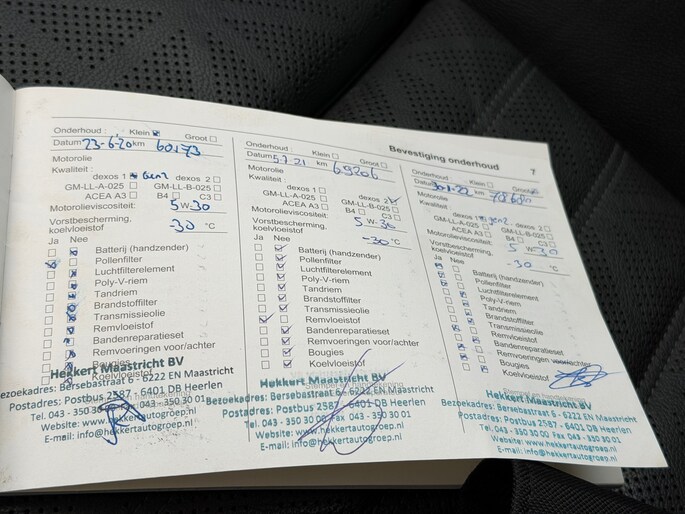 Onderhoud : Klein Groot
Datum 23-6-20 km 60173
Motorolie
Kwaliteit : dexos 1 Gen2 dexos 2
GM-LL-A-025 GM-LL-B-025
ACEA A3 B4 C3
Motorolieviscositeit: 5 W- 30
Vorstbescherming,
koelvloeistof -30 °C
Ja Nee
Batterij (handzender)
Pollenfilter
Luchtfilterelement
Poly-V-riem
Tandriem
Brandstoffilter
Transmissieolie
Remvloeistof
Bandenreparatieset
Remvoeringen voor/achter
Bougies
Koelvloeistof
Hekkert Maastricht BV
Bezoekadres: Bersebastraat 6 - 6222 EN Maastricht
Postadres: Postbus 2587 - 6401 DB Heerlen
Tel. 043 - 350 30 00 Fax 043 - 350 30 01
Website: www.hekkertautogroep.nl
E-mail: info@hekkertautogroep.nl
Onderhoud : Klein Groot
Datum 5-7-21 km 69206
Motorolie
Kwaliteit : dexos 1 dexos 2
GM-LL-A-025 GM-LL-B-025
ACEA A3 B4 C3
Motorolieviscositeit: 5 W- 30
Vorstbescherming,
koelvloeistof -30 °C
Ja Nee
Batterij (handzender)
Pollenfilter
Luchtfilterelement
Poly-V-riem
Tandriem
Brandstoffilter
Transmissieolie
Remvloeistof
Bandenreparatieset
Remvoeringen voor/achter
Bougies
Koelvloeistof
Hekkert Maastricht BV
Bezoekadres: Bersebastraat 6 - 6222 EN Maastricht
Postadres: Postbus 2587 - 6401 DB Heerlen
Tel. 043 - 350 30 00 Fax 043 - 350 30 01
Website: www.hekkertautogroep.nl
E-mail: info@hekkertautogroep.nl
Bevestiging onderhoud 7
Onderhoud : Klein Groot
Datum km
Motorolie
Kwaliteit : dexos 1 gen2 dexos 2
GM-LL-A-025 GM-LL-B-025
ACEA A3 B4 C3
Motorolieviscositeit: 5 W- 30
Vorstbescherming,
koelvloeistof -30 °C
Ja Nee
Batterij (handzender)
Pollenfilter
Luchtfilterelement
Poly-V-riem
Tandriem
Brandstoffilter
Transmissieolie
Remvloeistof
Bandenreparatieset
Remvoeringen voor/achter
Bougies
Koelvloeistof
Hekkert Maastricht BV
Bezoekadres: Bersebastraat 6 - 6222 EN Maastricht
Postadres: Postbus 2587 - 6401 DB Heerlen
Tel. 043 - 350 30 00 Fax 043 - 350 30 01
Website: www.hekkertautogroep.nl
E-mail: info@hekkertautogroep.nl